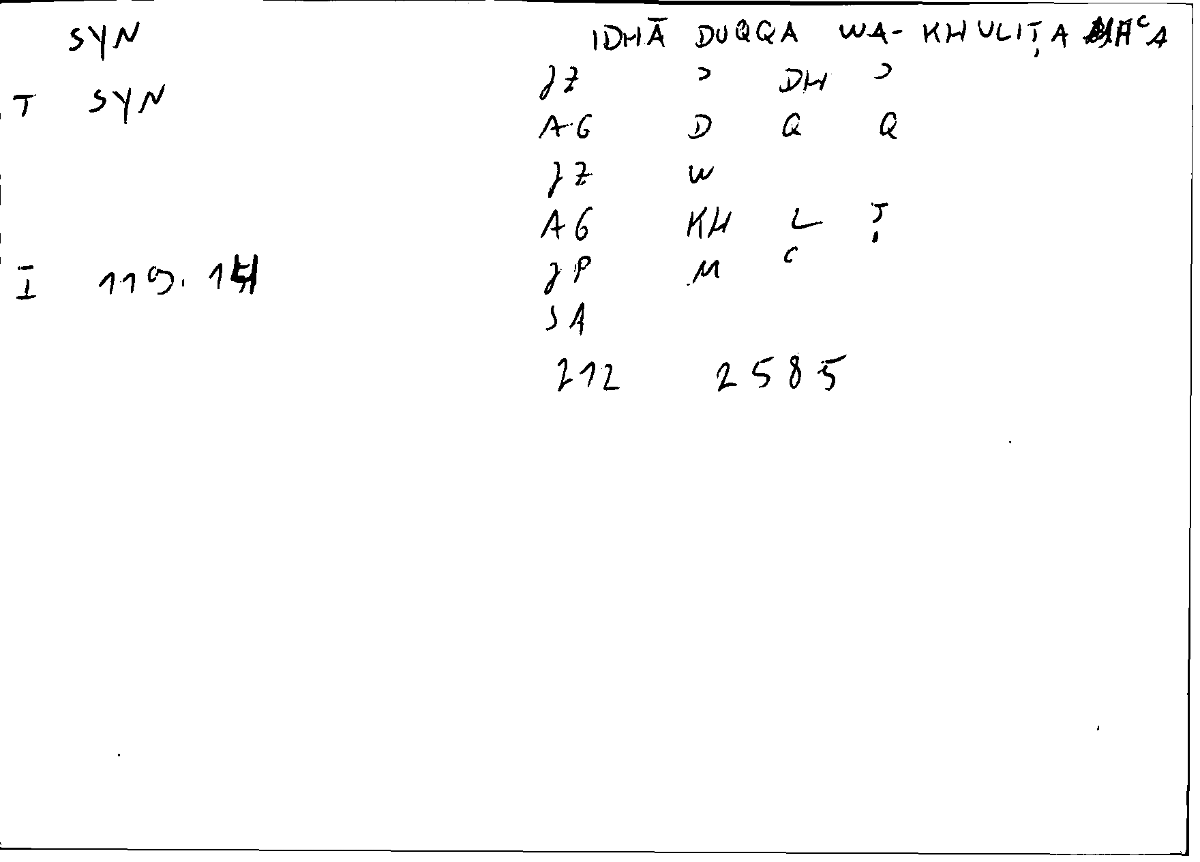 SYN IDHĀ DUQQA WA- KHULIṬA MAʿA
JZ ʾ DH ʾ
T SYN
AG D Q Q
JZ W
AG KH L Ṭ
I 119. JP M ʿ
SA
212 2585